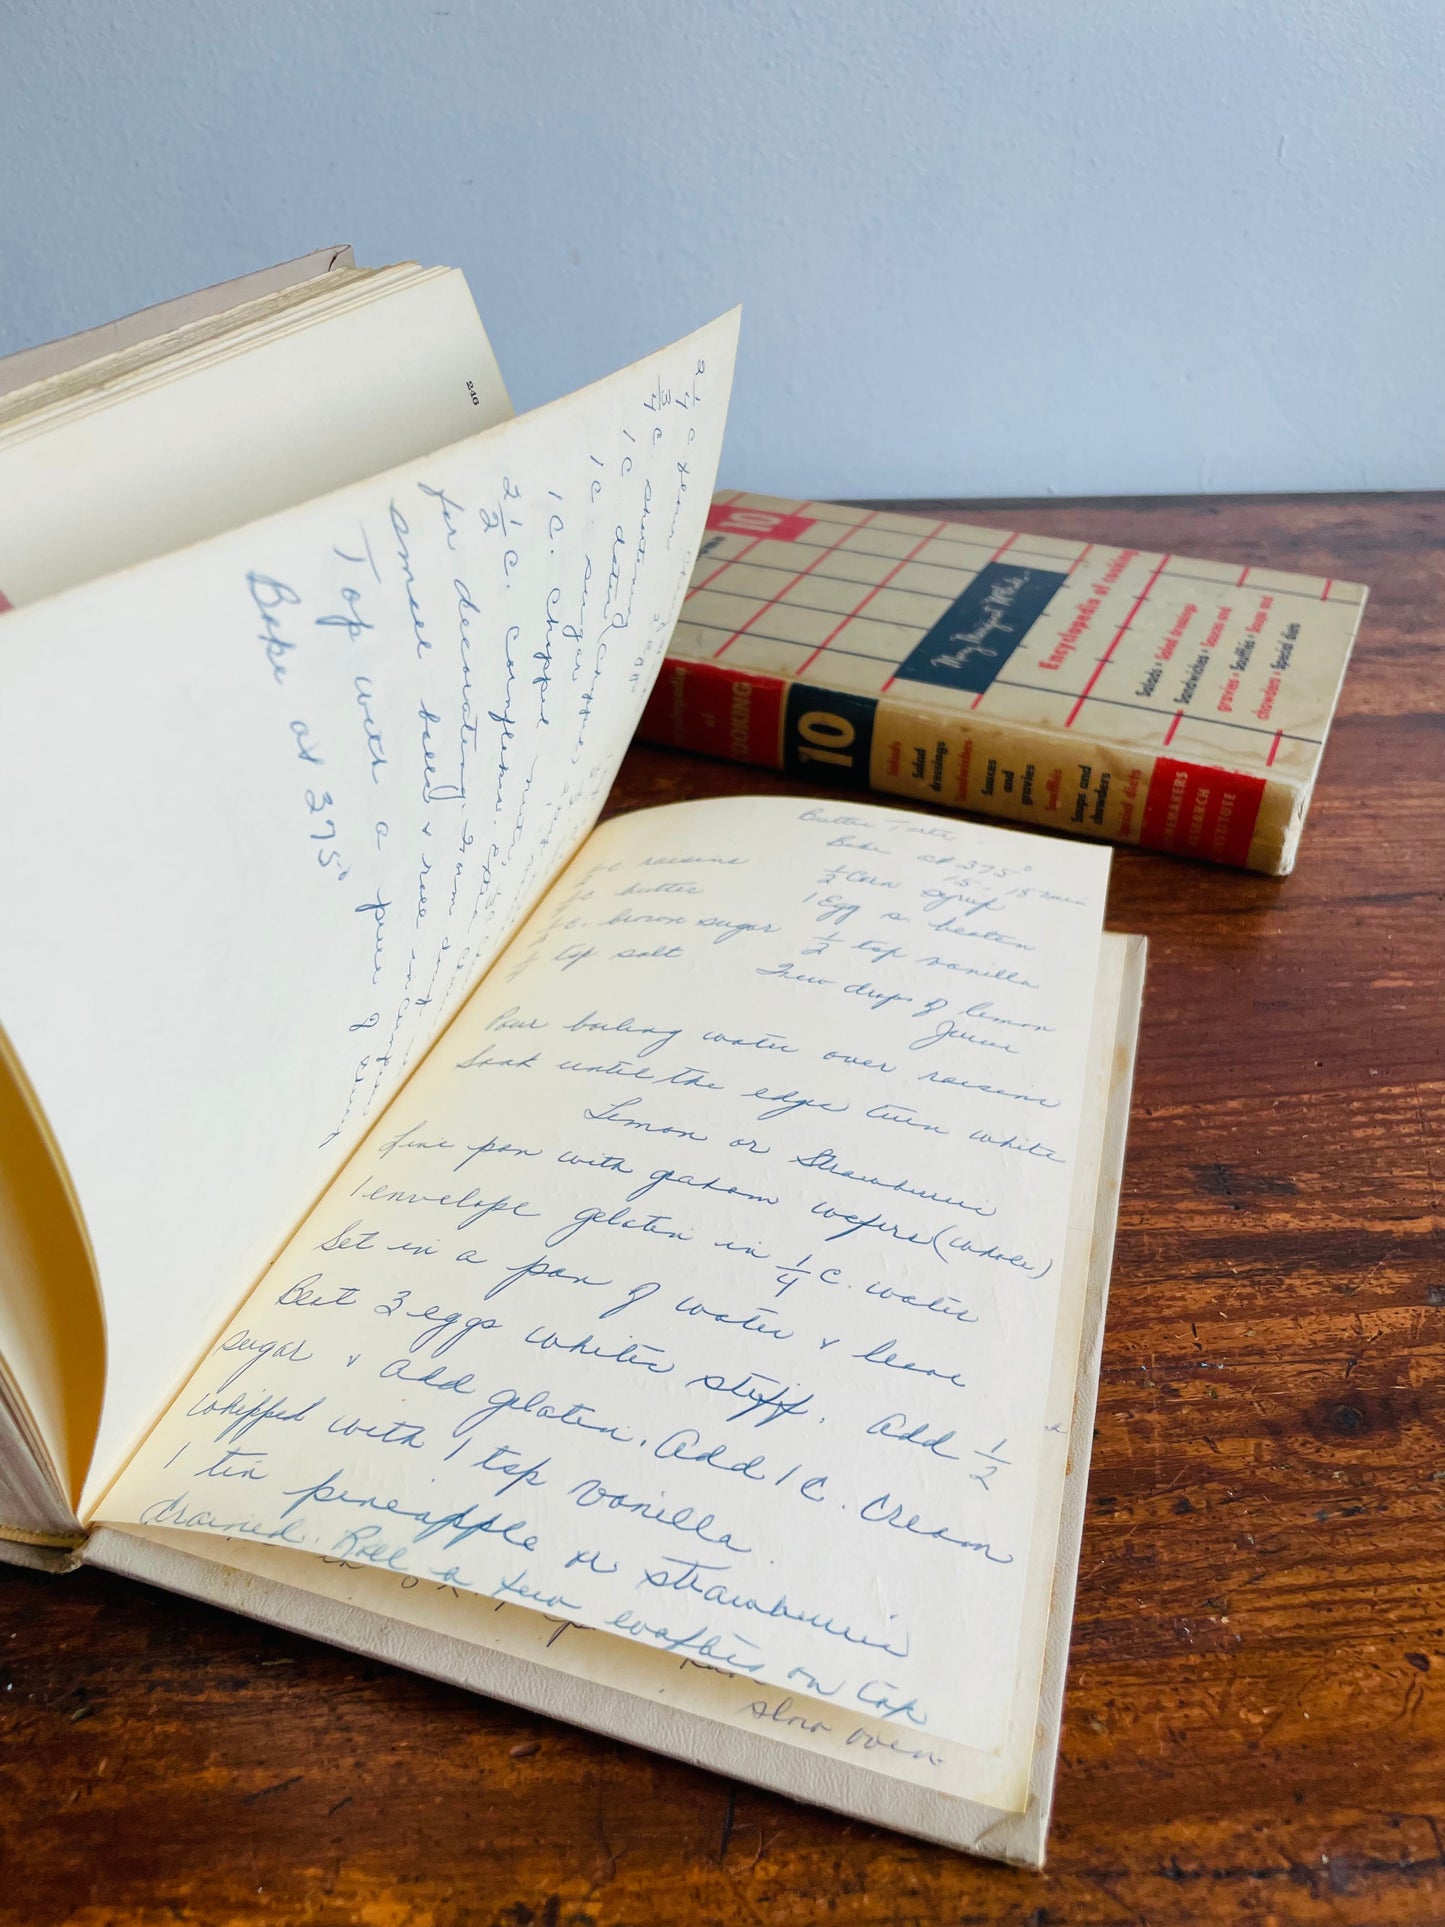 246
2 1/4 c
3/4 c. shortening
1 c dates (chopped
1 c. sugar
1 c. chopped nuts
2 1/2 c. cornflakes.
for decorating. Form dough in
small balls & roll in cornflakes
Top with a piece of
Bake at 375°
Butter Tarts
Bake at 375°
15 - 18 min
c raisins
c. butter
c. brown sugar
tsp salt
1/2 c corn syrup
1 Egg s. beaten
1/2 tsp vanilla
Few drops of lemon
Juice
Pour boiling water over raisins
Soak until the edge turn white
Lemon or Strawberrie
Line pan with graham wafers (whole)
1 envelope gelatin in 1/4 c. water
Set in a pan of water & leave
Beat 3 eggs whites stiff. Add 1/2
sugar & add gelatin. Add 1 c. cream
whipped with 1 tsp vanilla.
1 tin pineapple or strawberrie
drained. Roll a few wafers on top
slow oven
10
May Margaret McBride
Encyclopedia of Cooking
Salads • Salad dressings
Sandwiches • Sauces and
gravies • Soufflés • Soups and
chowders • Special diets
of
COOKING
10
Salads
Salad
dressings
Sandwiches
Sauces
and
gravies
Soufflés
Soups and
chowders
Special diets
HOMEMAKERS
RESEARCH
INSTITUTE